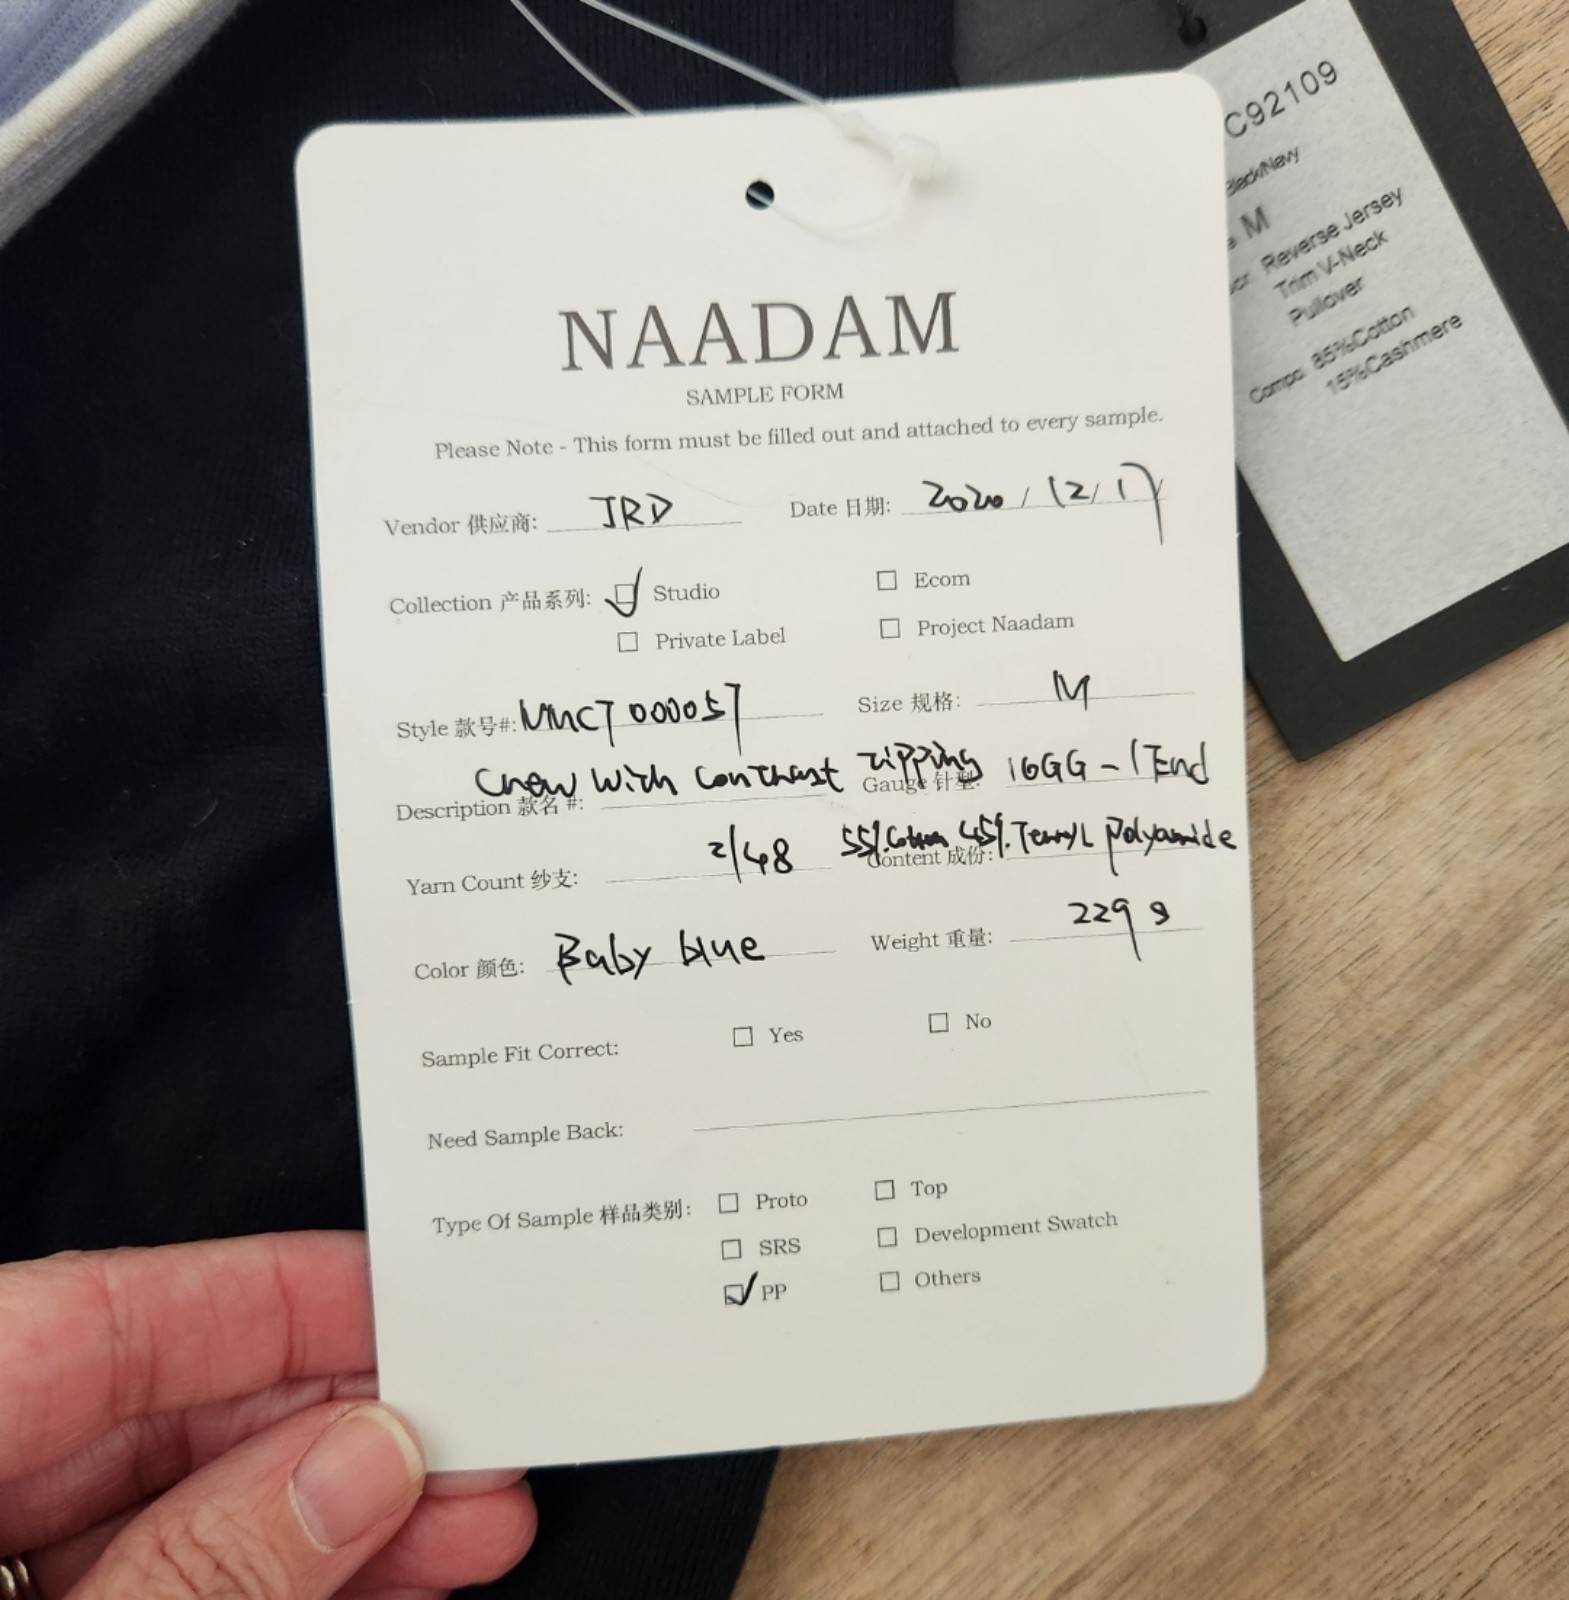 NAADAM
SAMPLE FORM
Please Note - This form must be filled out and attached to every sample.
Vendor 供应商: JRD Date 日期: 2020/12/17
Collection 产品系列: Studio Ecom
Private Label Project Naadam
Style 款号#: MMCT000057 Size 规格: M
Description 款名 #: Crew with contrast tipping Gauge 针型: 16GG - 1 End
Yarn Count 纱支: 2/48 Content 成份: 55%.Cotton 45%. Polyamide
Color 颜色: Baby blue Weight 重量: 229 g
Sample Fit Correct: Yes No
Need Sample Back:
Type Of Sample 样品类别: Proto Top
SRS Development Swatch
PP Others
C92109
Black/Navy
M
Reverse Jersey
Trim V-Neck
Pullover
Compo 85%Cotton
15%Cashmere